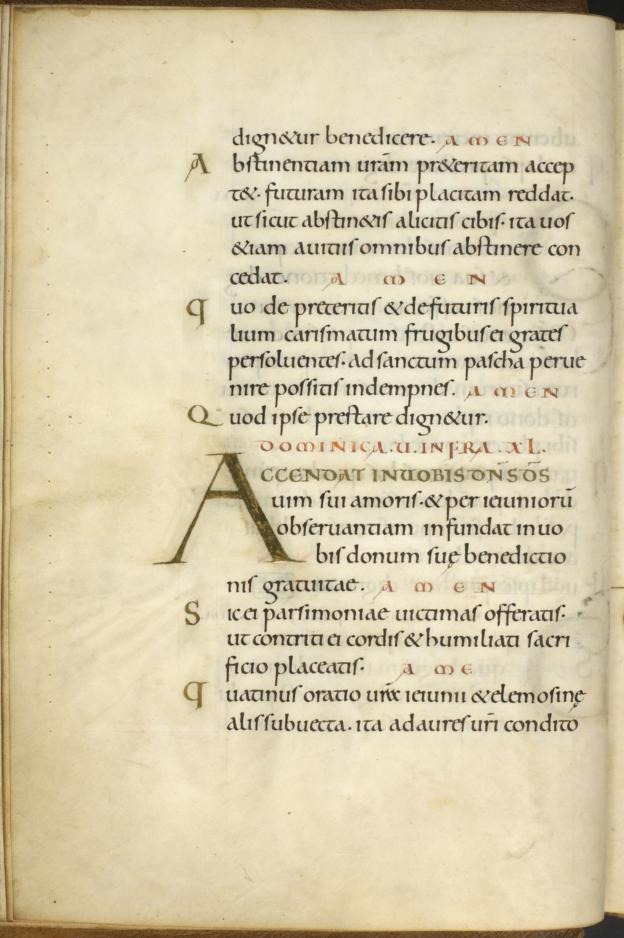 dign&ur benedicere. AMEN
Abstinentiam uram̄ pr&eritam accep
t&. futuram ita sibi placitam reddat.
ut sicut abstin&is a licitis cibis. ita uos
&iam a uitiis omnibus abstinere con
cedat. AMEN
Quo de preteritis & de futuris spiritua
lium carismatum frugibus ei grates
persoluentes. ad sanctum pascha perue
nire possitis indempnes. AMEN
Quod ipse prestare dign&ur.
DOMINICA.U.INFRA.XL.
ACCENDAT IN UOBIS DN̄S D̄S
uim sui amoris. & per ieiuniorū
obseruantiam infundat in uo
bis donum suę benedictio
nis gratuitae. AMEN
Sic ei parsimoniae uictimas offeratis.
ut contriti ei cordis & humiliati sacri
ficio placeatis. AME
Quatinus oratio ur̄ae ieiunii & elemosinę
alis subuecta. ita ad aures ur̄i condito